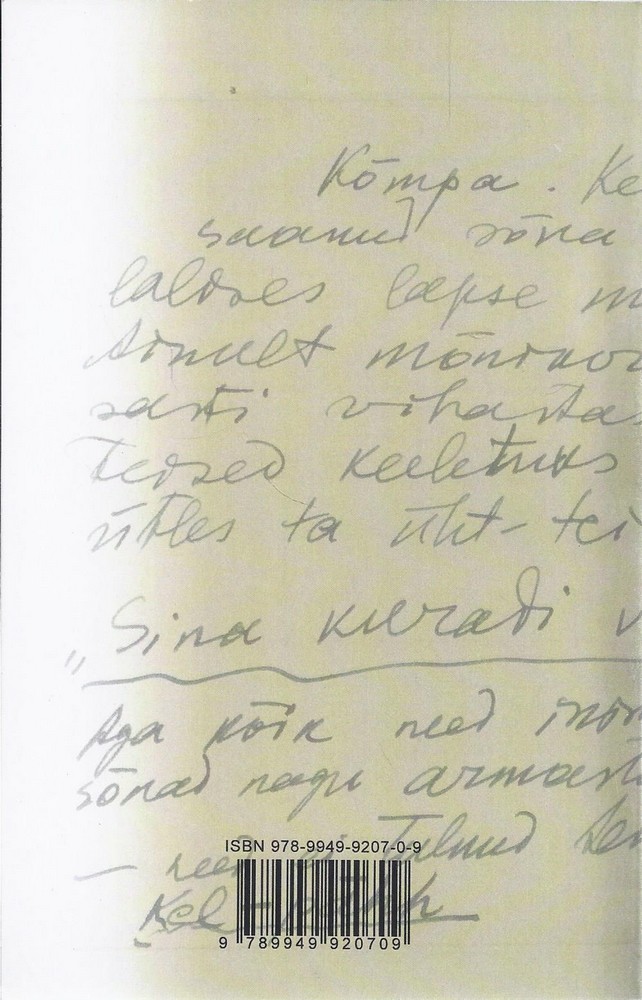 Kõmpa. Ke
saanud sõna
laldses lapse m
Ainult mõnikor
sasti vihastas
teised keeletuks
ütles ta üht-tei
„Sina kuradi v
Aga kõik need inim
sõnad nagu armast
— need ei tulnud
ISBN 978-9949-9207-0-9
9 789949 920709